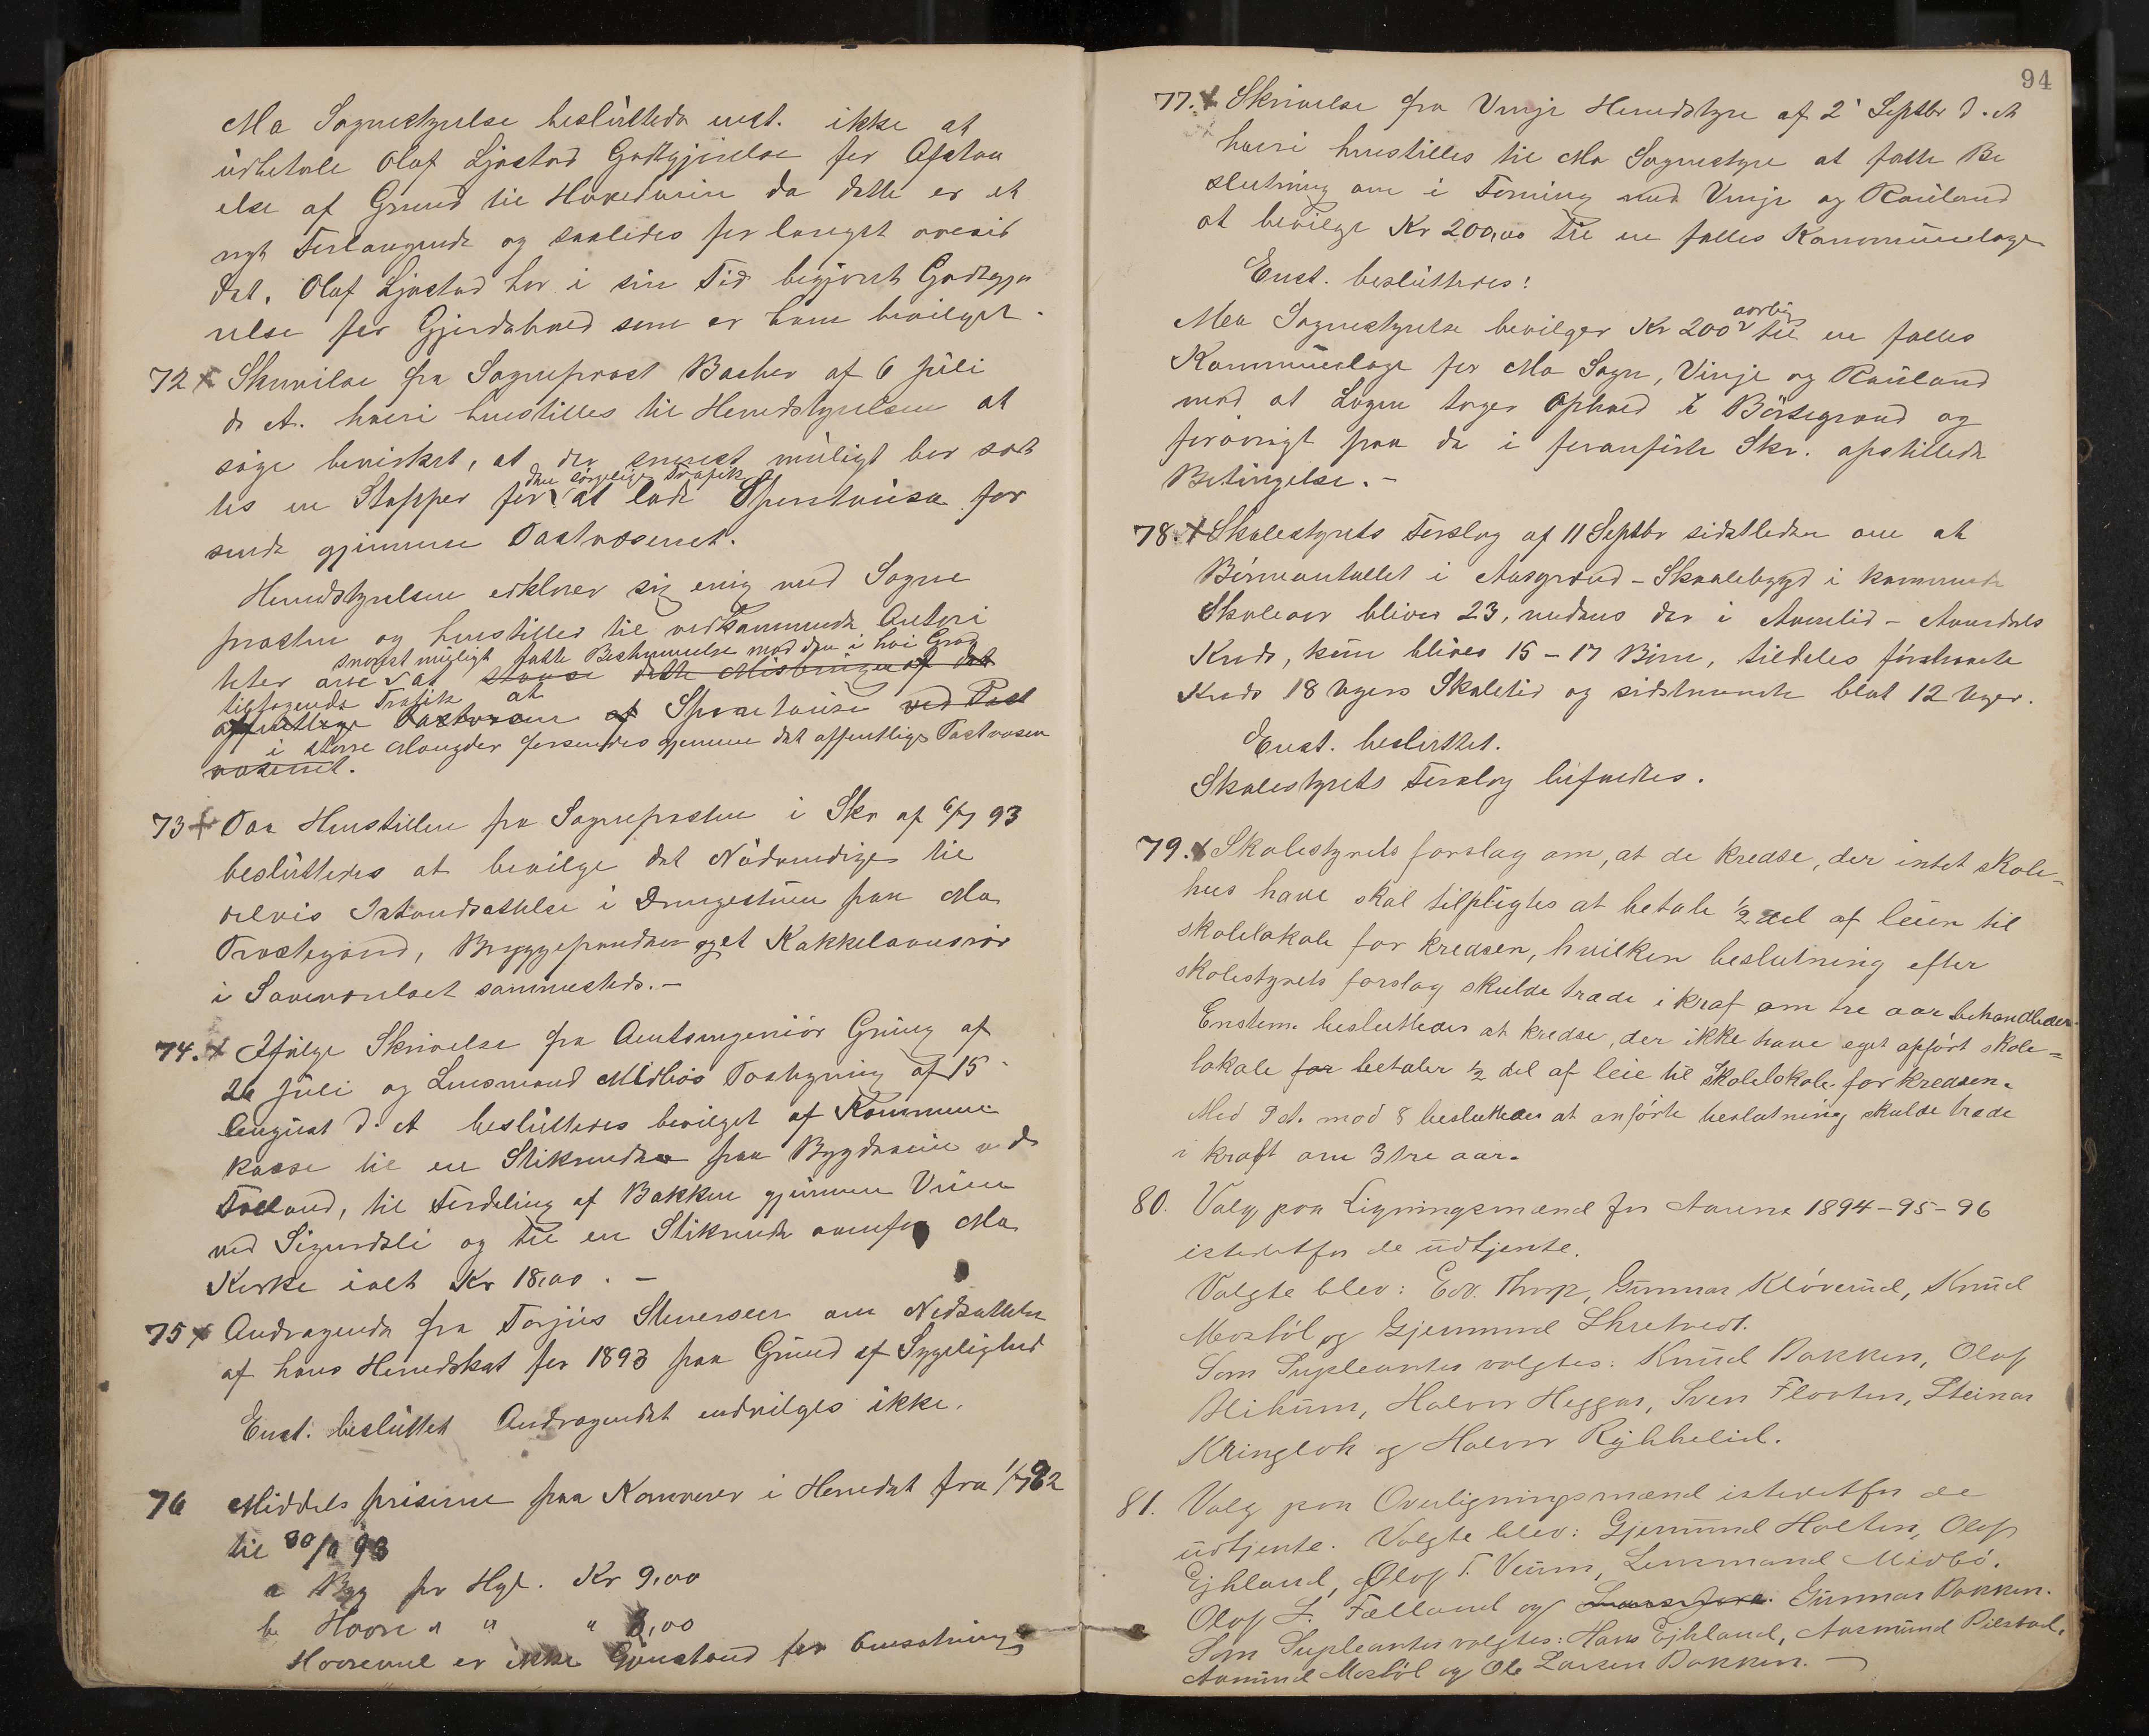 Mo Sognestyrelse besluttede enst. ikke at
udbetale Olaf Ljøstad Godtgjørelse for Afstaa
else af Grund til Hovedveien da dette er et
nyt Forlangende og saaledes for længst
det. Olaf Ljøstad har i sin Tid begjært Godtgjø
relse for Gjerdehold som er ham bevilget.
72 x Skrivelse fra Sogneprest Bacher af 6 Juli
d. A. hvori henstilles til Herredstyrelsen at
søge bevirket, at der snarest muligt bør sæt
den sørgelige Trafik
tes en Stopper for at lade Spirituosa for
sende gjennem Postvæsenet.
Herredstyrelsen erklærer sig enig med Sogne
præsten og henstiller til vedkommende Autori
snarest muligt fatte Bestemmelse mod den i høi Grad
teter om at standse dette Misbrugen af det
tiltagende Trafik at
offentlige Postvæsen af Spirituosa ved Post
i større Mængder forsendes gjennem det offentlige Postvæsen
væsenet.
73 + Paa Henstillen fra Sognepresten i Skr af 6/7 93
besluttedes at bevilge det Nødvendige til
delvis Istandsættelse i Drengestuen paa Mo
Prestegaard, Bryggepanden og et Kakkelovnsrør
i Soveværelset sammesteds. -
74. x Ifølge Skrivelse fra Amtsingeniør Grüng af
26 Juli og Lensmand Midbøs Paategning af 15
August d. A besluttedes bevilget af Kommune
kasse til en Stikrende paa Bygdeveien ved
Fælland, til Fordeling af Bakken gjennem Veien
ved Sigurdsli og til en Stikrende ovenfor Mo
Kirke ialt Kr 18,00. -
75 x Andragende fra Torjus Stenersen om Nedsættelse
af hans Herredskat for 1893 paa Grund af Sygelighed
Enst. besluttet Andragendet indvilges ikke.
76 Middels priserne paa Kornvarer i Herredet fra 1/7 92
til 30/6 93
a Byg pr Hgl. Kr 9,00
b Havre " " " 6,00
Havremel er ikke Gjenstand for Omsætning
94
77. x Skrivelse fra Vinje Herredstyre af 2 Septbr d. A
hvori henstilles til Mo Sognestyre at fatte Be
slutning om i Forening med Vinje og Rauland
at bevilge Kr 200,00 til en fælles Kommunelæge
Enst. besluttedes:
aarlig
Mo Sognestyrelse bevilger Kr 200 til en fælles
Kommunelæge for Mo Sogn, Vinje og Rauland
mod at Lægen tager Ophold i Børtegrend og
forøvrigt paa de i foranførte Skr. opstillede
Betingelse. -
78. x Skolestyrets Forslag af 11 Septbr sidstleden om at
Børneantallet i Aasgrend - Skaalebygd i kommende
Skoleaar bliver 23, medens der i Aamlid - Aamdals
Kreds, kun blives 15 - 17 Børn, tildeles førstnævnte
Kreds 18 Ugers Skoletid og sidstnævnte blot 12 Uger.
Enst. besluttet.
Skolestyrets Forslag bifaldtes.
79. x Skolestyrets forslag om, at de kredse, der intet skole-
hus have skal tilpligtes at betale 1/2 del af leien til
skolelokale for kredsen, hvilken beslutning efter
skolestyrets forslag skulde træde i kraf om tre aar behandledes.
Enstem. besluttedes at kredse, der ikke have eget opført skole=
lokale for betaler 1/2 del af leie til skolelokale for kredsen.
Med 9 st. mod 8 besluttedes at anførte beslutning skulde træde
i kraft om 3 tre aar.
80. Valg paa Ligningsmænd for Aarene 1894-95-96
istedetfor de udtjente.
Valgte blev: Edv. Thorp, Gunnar Kløverud, Knud
Mostøl og Gjermund Skretvedt.
Som Supleanter valgtes: Knud Bakken, Olaf
Blikum, Halvor Heggar, Sven Flaaten, Steinar
Kringlok og Halvor Rykkelid.
81. Valg paa Overligningsmænd istedetfor de
udtjente. Valgte blev: Gjermund Holten, Olaf
Ejkland, Olaf T. Veum, Lensmand Midbø.
Olaf S. Fælland og Gunnar Bakken.
Som Supleanter valgtes: Hans Ejkland, Aasmund
Aamund Mostøl og Ole Larsen Bakken. -